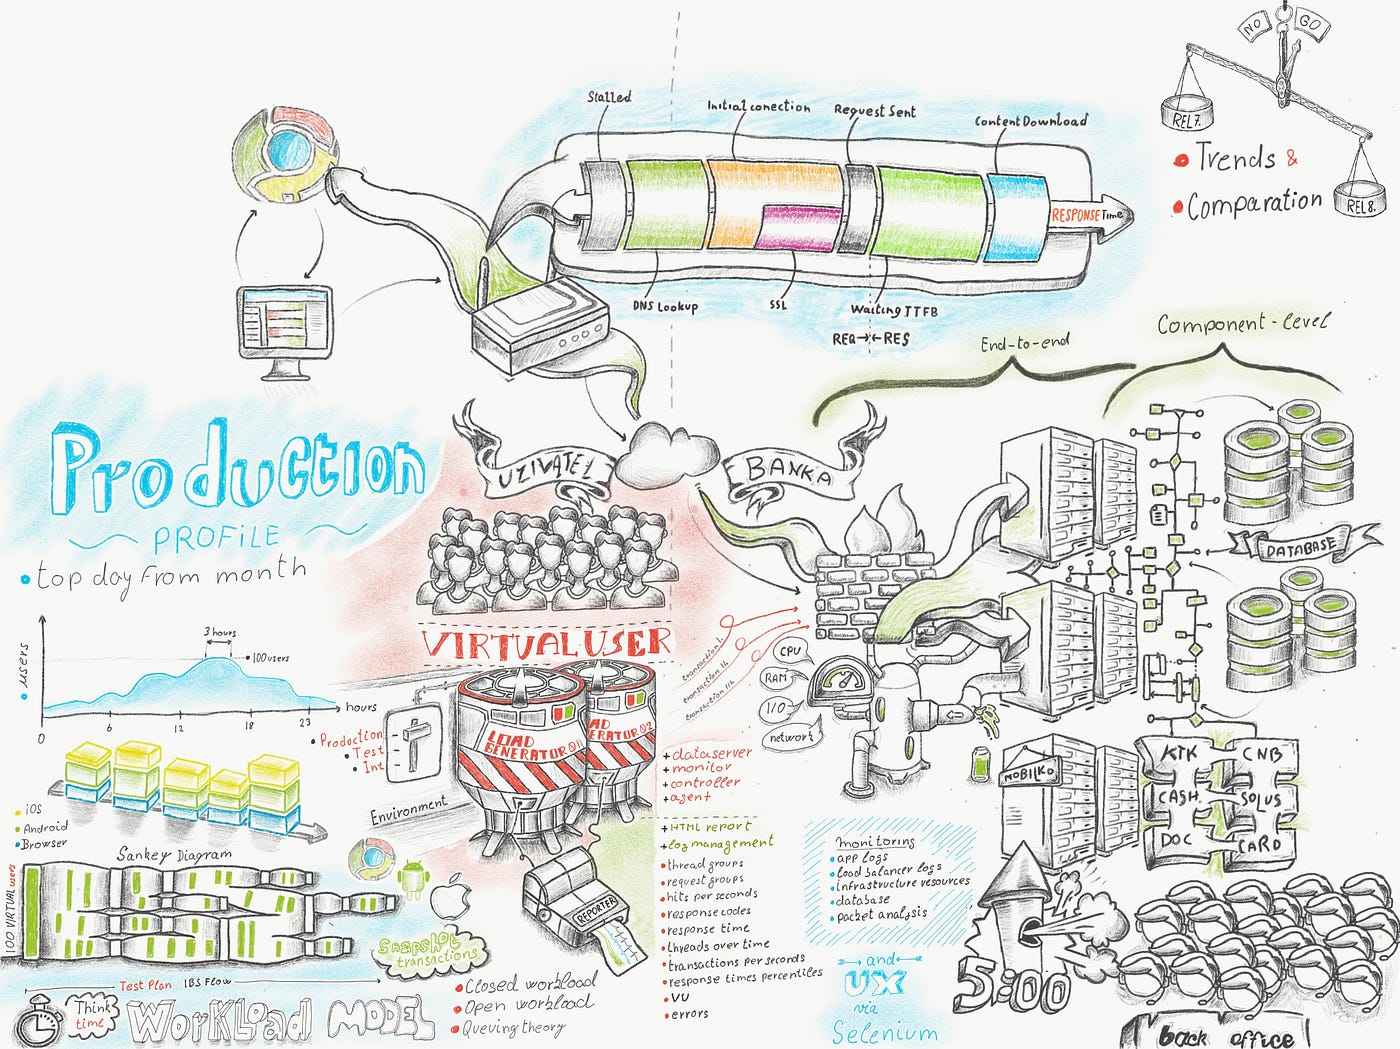 NO GO
REL7.
REL8.
Trends &
Comparation
Stalled
Initial conection
Request Sent
Content Download
RESPONSE Time
DNS Lookup
SSL
Waiting TTFB
REQ→←RES
End-to-end
Component-level
Production
PROFiLE
top day from month
users
3 hours
100users
0 6 12 18 23
hours
iOS
Android
Browser
Sankey Diagram
100 VIRTUAL users
Test Plan IBS Flow
Think
time
WorKLoad MODEL
Snapshot
transactions
Closed workload
Open workload
Queving theory
UZIVATEL
BANKA
VIRTUAL USER
transaction I.
transaction II.
transaction III.
Production
Test
Int
Environment
LOAD
GENERATOR 01
AD
ERATOR 02
REPORTER
+dataserver
+monitor
+controller
+agent
+HTML report
+log management
thread groups
request groups
hits per seconds
response codes
response time
threads over time
transactions per seconds
response times percentiles
VU
errors
CPU
RAM
I/O
network
monitoring
app logs
load balancer logs
infrastructure resources
database
packet analysis
and
UX
via
Selenium
DATABASE
MOBILKO
KTK CNB
CASH SOLUS
DOC CARD
5:00
back office